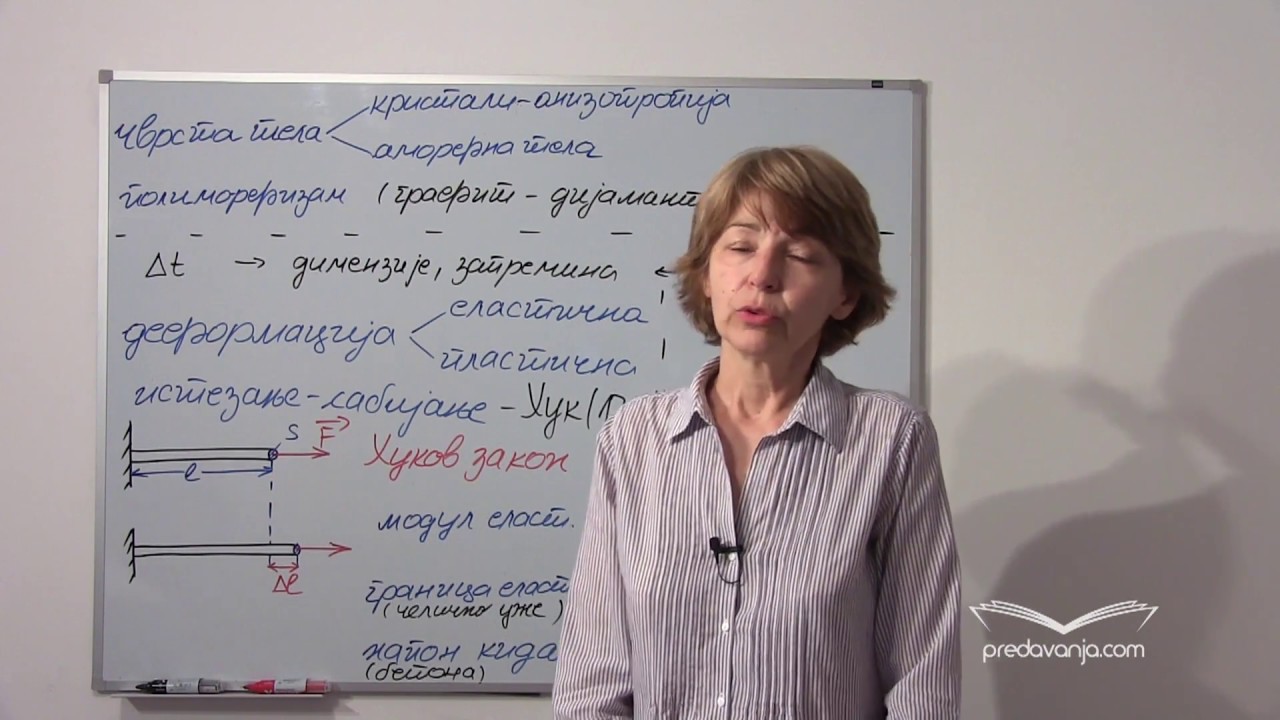 кристали-анизотропија
чврста тела
аморфна тела
полиморфизам (графит - дијамант
Δt → димензије, запремина ←
еластична
деформација
пластична
истезање-сабијање - Хук(
S F
Хуков закон
l
модул еласт.
Δl
граница еласт
(челично уже)
напон кида
(бетона)
predavanja.com